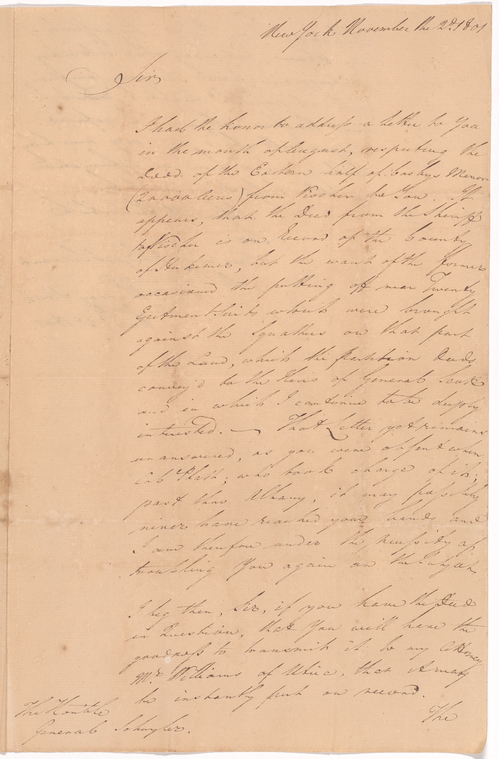 New York November the 2d. 1801
Sir
I had the honor to address a Letter to You
in the month of August, respecting the
Deed of the Eastern half of Cosbys Manor
(22000 Acres) from Fischer to You. It
appears, that the Deed from the Sheriff
to Fischer is on Record of the County
of Herkemer, but the want of the former
occasioned the putting off near Twenty
Ejectment Suits which were brought
against the Squatters on that part
of the Land, which the partition Deeds
convey'd to the Heirs of General
and in which I continue to be deeply
intrusted. — That Letter yet remains
unanswered, as you were absent when
who took charge of it,
past thro Albany, it may possibly
never have reached your hands and
I am therefore under the necessity of
troubling You again on the Subject
I beg then, Sir, if you have the Deed
in Question, that You will have the
goodness to transmit it to my Attorney
Mr. Williams of Utica, that it may
be instantly put on record.
The
The Honble.
General Schuyler.